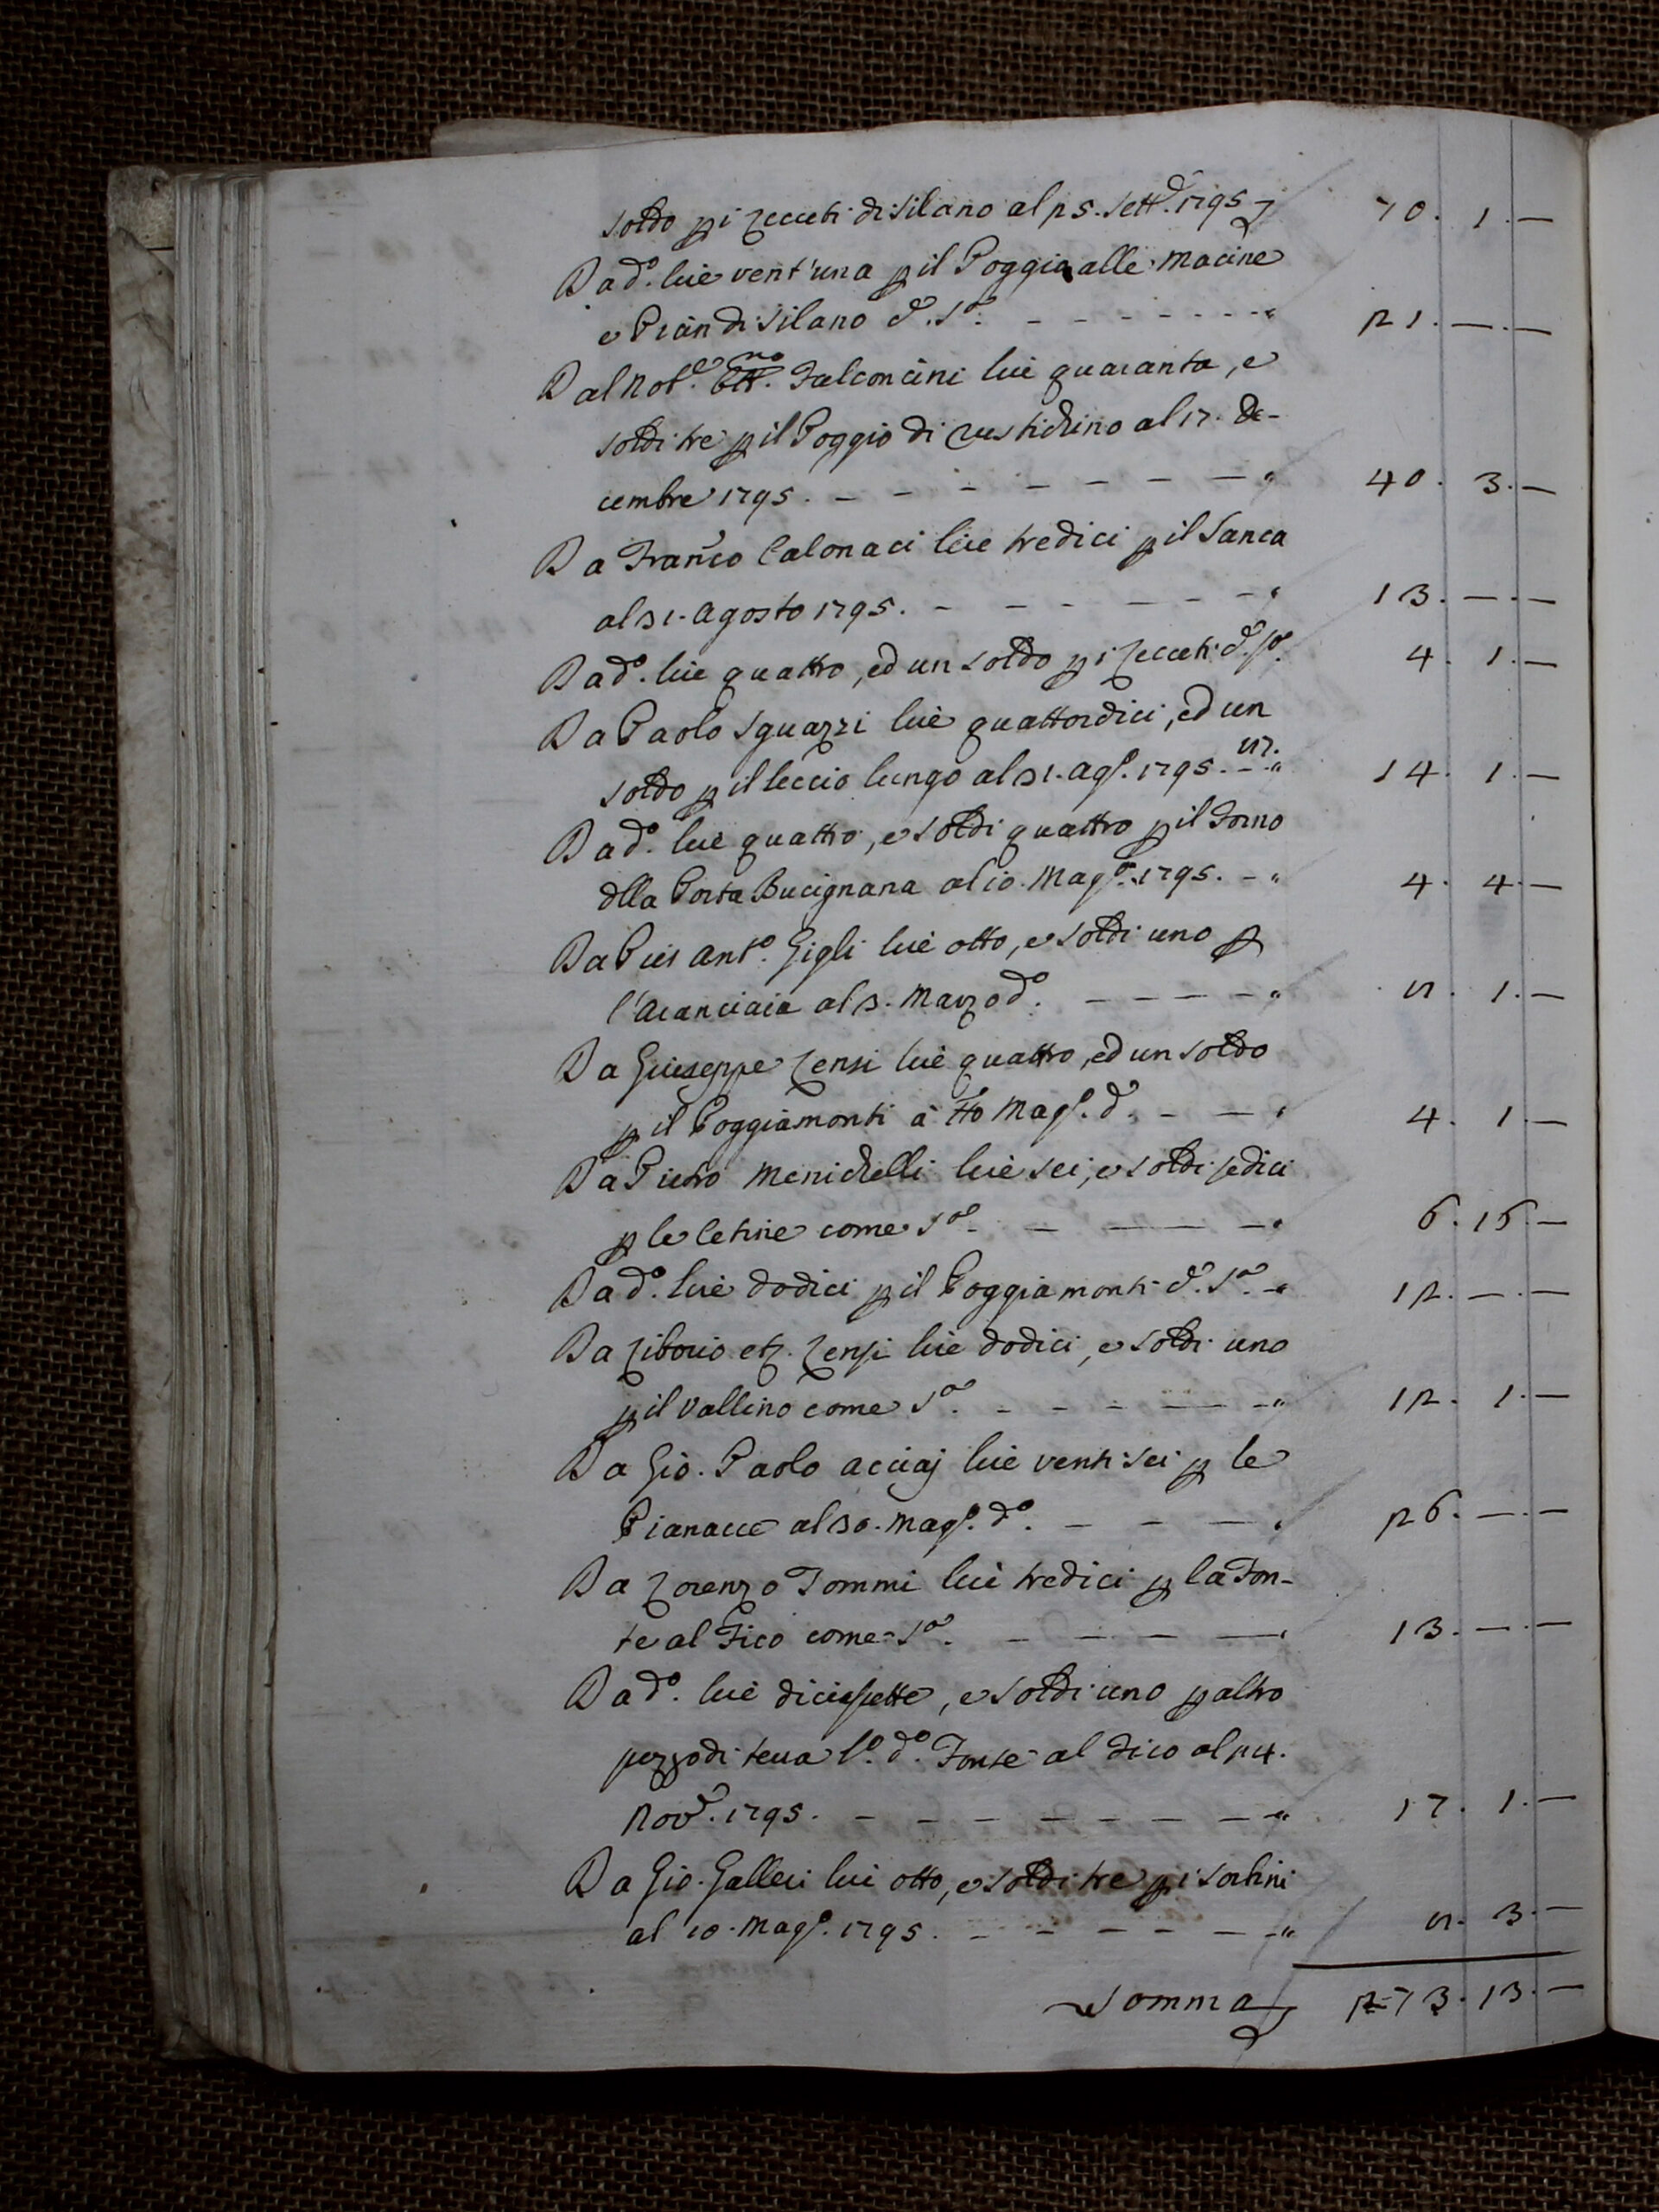 soldo p i Lecceti di Silano al 25. Sett.e 1795 70. 1. —
Da d.o lire vent'una p il Poggio alle Macine
e Pian di Silano d.o S.a - - - - - - - " 21. —. —
Dal Nob.e Falconcini lire quaranta, e
soldi tre p il Poggio di Rustichino al 17. De-
cembre 1795. — — — — — — — " 40. 3. —
Da Fran.co Calonaci lire tredici p il Santa
al 31. Agosto 1795. — — — — — — " 13. —. —
Da d.o lire quattro, ed un soldo p i Lecceti d.o S.a 4. 1. —
Da Paolo Sguazzi lire quattordici, ed un
soldo p il leccio lungo al 31. Ag.o 1795. — " 14. 1. —
Da d.o lire quattro, e soldi quattro p il Forno
dlla Porta Bucignana al 10. Mag.o 1795. — " 4. 4. —
Da Pier Ant.o Gigli lire otto, e soldi uno p
l'Aranciaia al 3. Marzo d.o — — — — " 8. 1. —
Da Giuseppe Lensi lire quattro, ed un soldo
p il Poggiamonti à tto Mag.o d.o — — " 4. 1. —
Da Pietro Menichelli lire sei, e soldi sedici
p le Cetine come S.a — — — " 6. 16. —
Da d.o lire dodici p il Poggiamonti d.o S.a — " 12. —. —
Da Liborio etz. Lensi lire dodici, e soldi uno
p il Vallino come S.a — — — — — " 12. 1. —
Da Gio. Paolo Acciaj lire ventisei p le
Pianacce al 30. Mag.o d.o — — — " 26. —. —
Da Lorenzo Tommi lire tredici p la Fon-
te al Fico come S.a — — — — " 13. —. —
Da d.o lire diciasette, e soldi uno p altro
pezzo di terra l.o d.o Fonte al Fico al 24.
Nov.e 1795. — — — — — — — " 17. 1. —
Da Gio. Galleri lire otto, e soldi tre p i Sortini
al 10. Mag.o 1795. — — — — — " 8. 3. —
Somma 273. 13. —